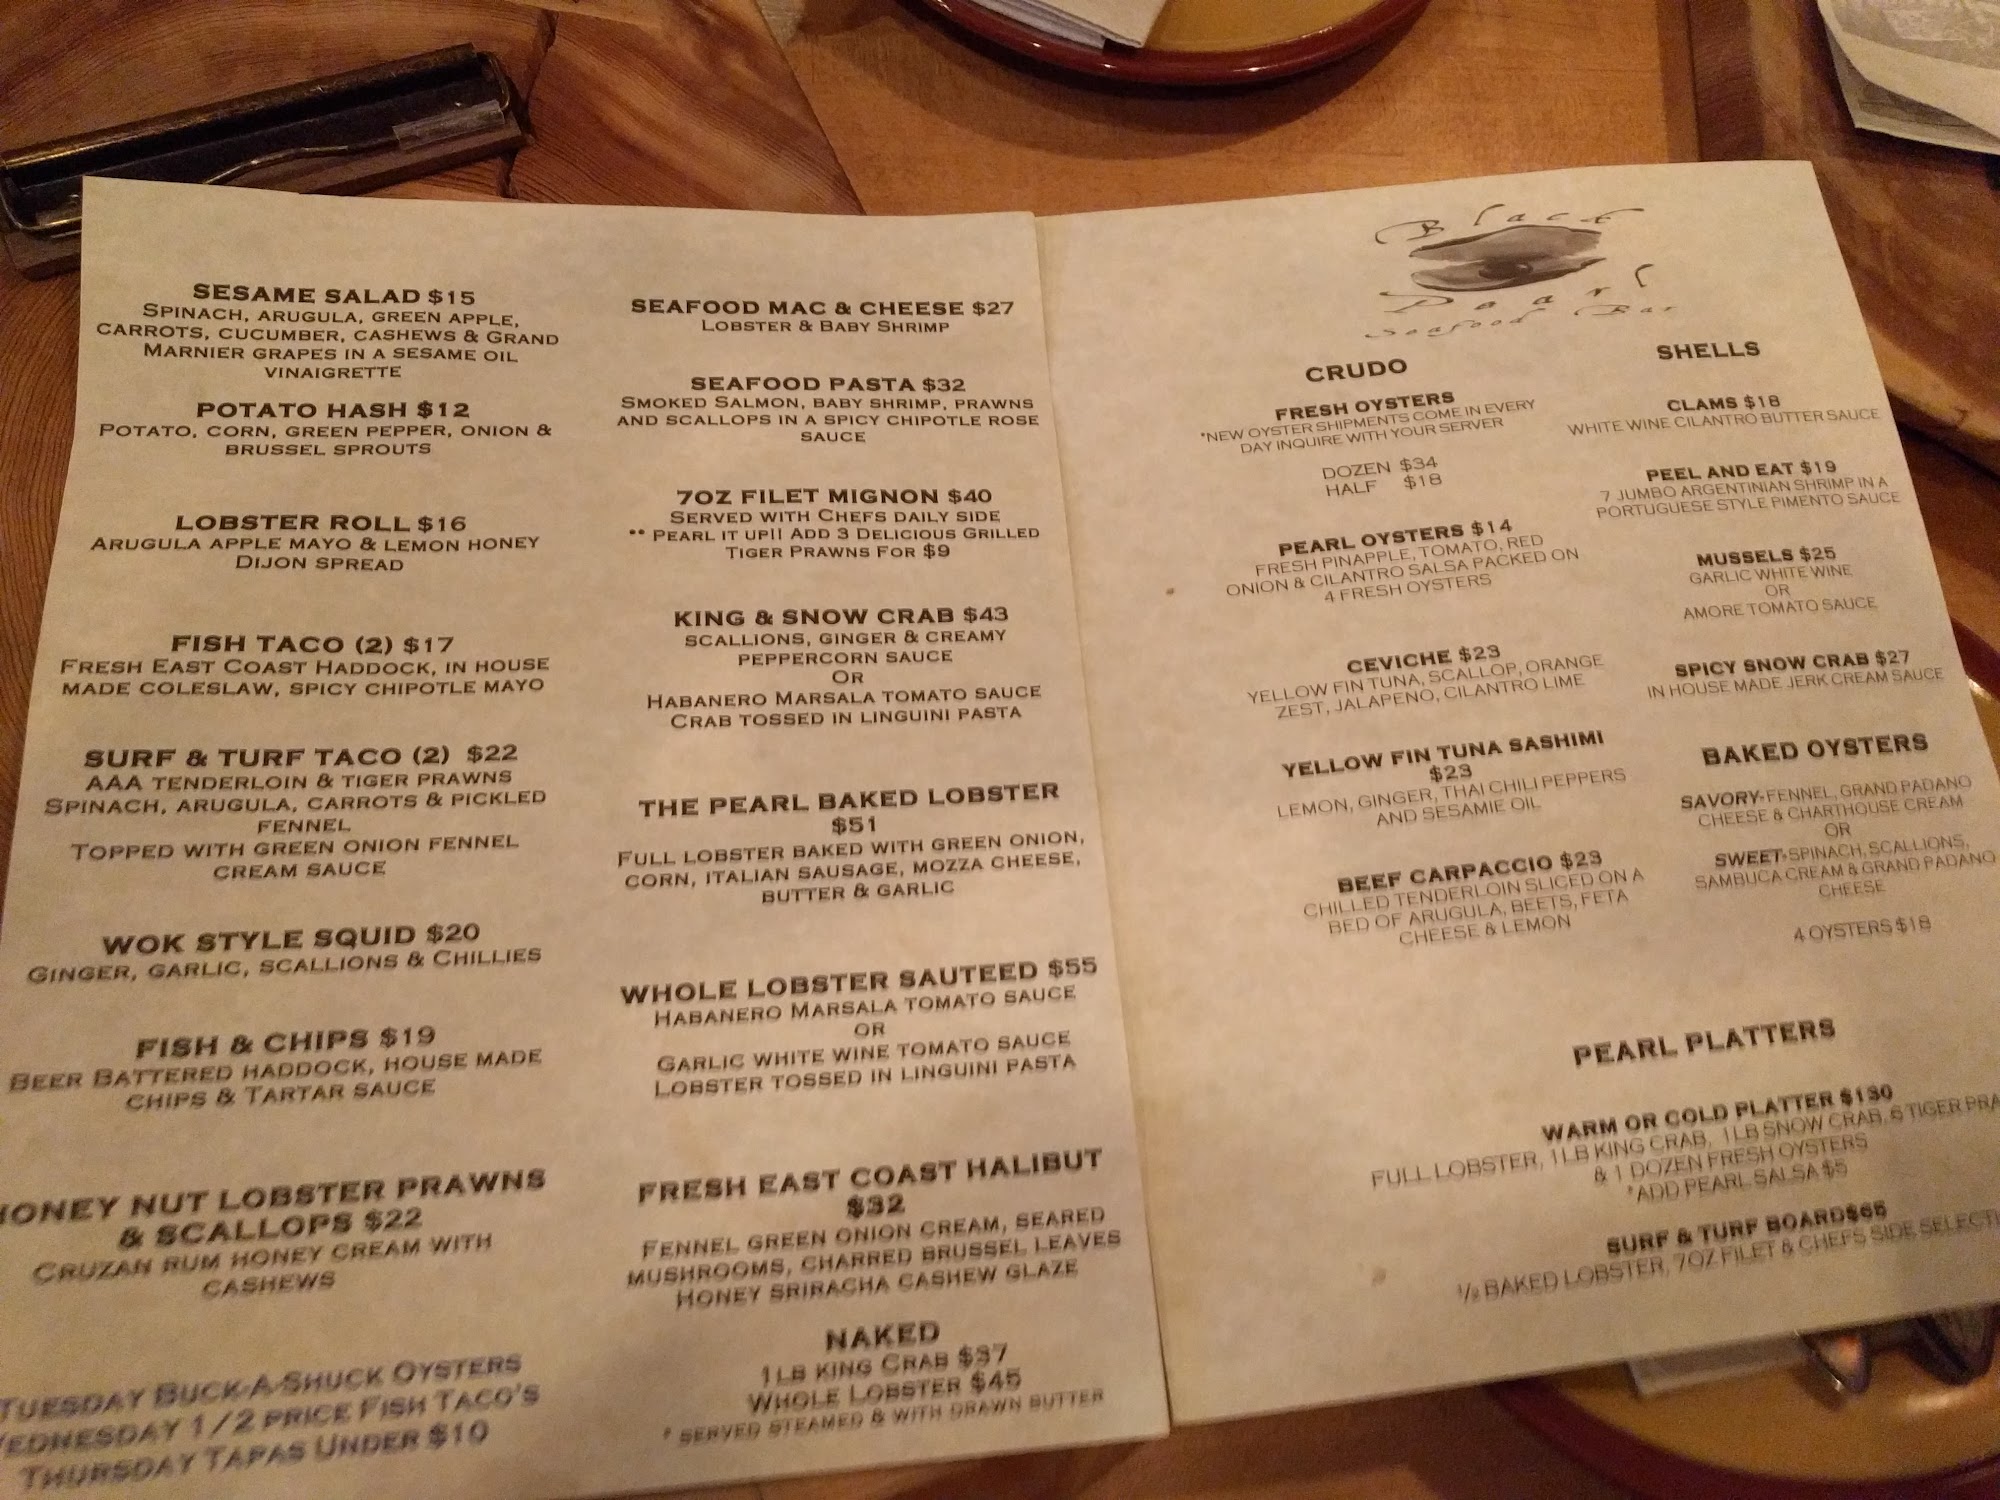 SESAME SALAD $15
SPINACH, ARUGULA, GREEN APPLE,
CARROTS, CUCUMBER, CASHEWS & GRAND
MARNIER GRAPES IN A SESAME OIL
VINAIGRETTE
POTATO HASH $12
POTATO, CORN, GREEN PEPPER, ONION &
BRUSSEL SPROUTS
LOBSTER ROLL $16
ARUGULA APPLE MAYO & LEMON HONEY
DIJON SPREAD
FISH TACO (2) $17
FRESH EAST COAST HADDOCK, IN HOUSE
MADE COLESLAW, SPICY CHIPOTLE MAYO
SURF & TURF TACO (2) $22
AAA TENDERLOIN & TIGER PRAWNS
SPINACH, ARUGULA, CARROTS & PICKLED
FENNEL
TOPPED WITH GREEN ONION FENNEL
CREAM SAUCE
WOK STYLE SQUID $20
GINGER, GARLIC, SCALLIONS & CHILLIES
FISH & CHIPS $19
BEER BATTERED HADDOCK, HOUSE MADE
CHIPS & TARTAR SAUCE
HONEY NUT LOBSTER PRAWNS
& SCALLOPS $22
CRUZAN RUM HONEY CREAM WITH
CASHEWS
TUESDAY BUCK-A-SHUCK OYSTERS
WEDNESDAY 1/2 PRICE FISH TACO'S
THURSDAY TAPAS UNDER $10
SEAFOOD MAC & CHEESE $27
LOBSTER & BABY SHRIMP
SEAFOOD PASTA $32
SMOKED SALMON, BABY SHRIMP, PRAWNS
AND SCALLOPS IN A SPICY CHIPOTLE ROSE
SAUCE
7OZ FILET MIGNON $40
SERVED WITH CHEFS DAILY SIDE
** PEARL IT UP!! ADD 3 DELICIOUS GRILLED
TIGER PRAWNS FOR $9
KING & SNOW CRAB $43
SCALLIONS, GINGER & CREAMY
PEPPERCORN SAUCE
OR
HABANERO MARSALA TOMATO SAUCE
CRAB TOSSED IN LINGUINI PASTA
THE PEARL BAKED LOBSTER
$51
FULL LOBSTER BAKED WITH GREEN ONION,
CORN, ITALIAN SAUSAGE, MOZZA CHEESE,
BUTTER & GARLIC
WHOLE LOBSTER SAUTEED $55
HABANERO MARSALA TOMATO SAUCE
OR
GARLIC WHITE WINE TOMATO SAUCE
LOBSTER TOSSED IN LINGUINI PASTA
FRESH EAST COAST HALIBUT
$32
FENNEL GREEN ONION CREAM, SEARED
MUSHROOMS, CHARRED BRUSSEL LEAVES
HONEY SRIRACHA CASHEW GLAZE
NAKED
1LB KING CRAB $37
WHOLE LOBSTER $45
* SERVED STEAMED & WITH DRAWN BUTTER
Black
Pearl
Seafood Bar
CRUDO
FRESH OYSTERS
*NEW OYSTER SHIPMENTS COME IN EVERY
DAY INQUIRE WITH YOUR SERVER
DOZEN $34
HALF $18
PEARL OYSTERS $14
FRESH PINAPPLE, TOMATO, RED
ONION & CILANTRO SALSA PACKED ON
4 FRESH OYSTERS
CEVICHE $23
YELLOW FIN TUNA, SCALLOP, ORANGE
ZEST, JALAPENO, CILANTRO LIME
YELLOW FIN TUNA SASHIMI
$23
LEMON, GINGER, THAI CHILI PEPPERS
AND SESAMIE OIL
BEEF CARPACCIO $23
CHILLED TENDERLOIN SLICED ON A
BED OF ARUGULA, BEETS, FETA
CHEESE & LEMON
SHELLS
CLAMS $18
WHITE WINE CILANTRO BUTTER SAUCE
PEEL AND EAT $19
7 JUMBO ARGENTINIAN SHRIMP IN A
PORTUGUESE STYLE PIMENTO SAUCE
MUSSELS $25
GARLIC WHITE WINE
OR
AMORE TOMATO SAUCE
SPICY SNOW CRAB $27
IN HOUSE MADE JERK CREAM SAUCE
BAKED OYSTERS
SAVORY-FENNEL, GRAND PADANO
CHEESE & CHARTHOUSE CREAM
OR
SWEET-SPINACH, SCALLIONS,
SAMBUCA CREAM & GRAND PADANO
CHEESE
4 OYSTERS $18
PEARL PLATTERS
WARM OR COLD PLATTER $130
FULL LOBSTER, 1LB KING CRAB, 1LB SNOW CRAB, 6 TIGER PRA
& 1 DOZEN FRESH OYSTERS
*ADD PEARL SALSA $5
SURF & TURF BOARD $65
1/2 BAKED LOBSTER, 7OZ FILET & CHEFS SIDE SELECTI